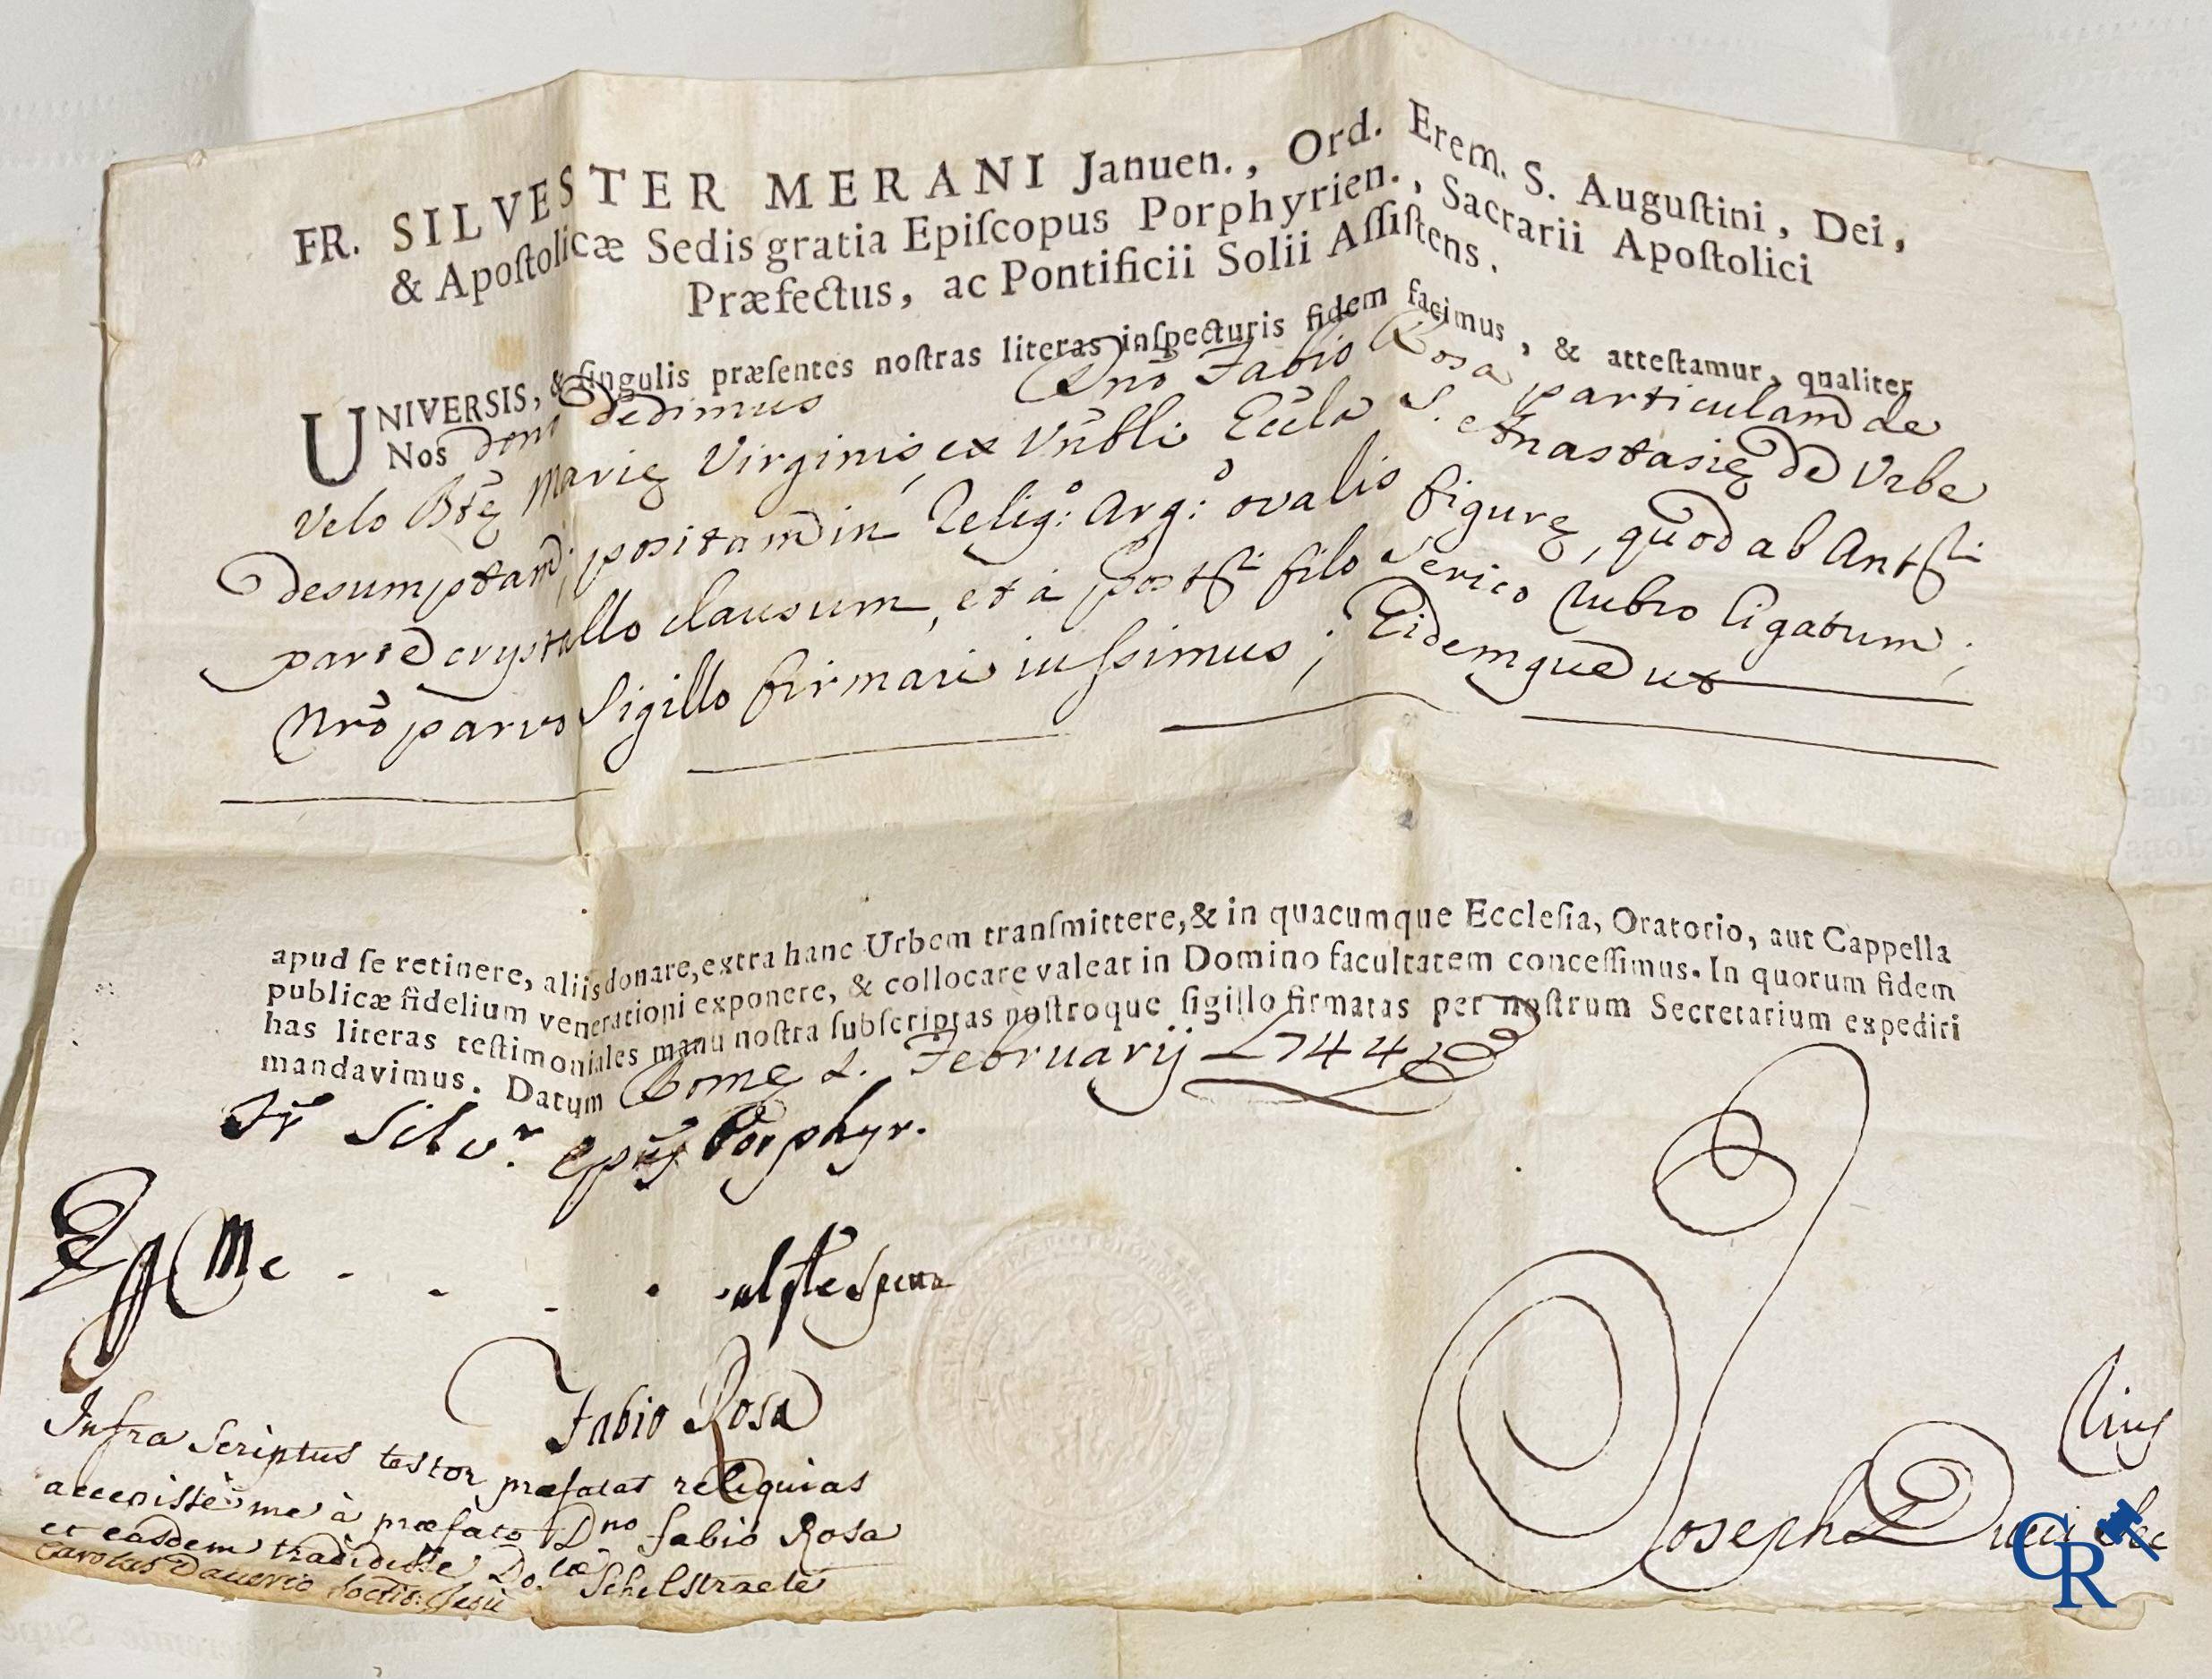 FR. SILVESTER MERANI Januen., Ord. Erem. S. Auguſtini, Dei,
& Apoſtolicæ Sedis gratia Epiſcopus Porphyrien., Sacrarii Apoſtolici
Præfectus, ac Pontificii Solii Aſſiſtens.
UNIVERSIS, & ſingulis præſentes noſtras literas inſpecturis fidem facimus, & atteſtamur, qualiter
Nos dono dedimus Dnō Fabio Rosa particulam de
Velo Btę Marię Virginis, ex Vnbli Eccla S. Anastasię de Vrbe
desumptam; positam in Reliq:º Arg:º ovalis figurę, quod ab Antᵉⁱ
parte crystallo clausum, et à postᵉⁱ filo serico rubro ligatum;
Nrō parvo Sigillo firmari iuſsimus; Eidemque ut
apud ſe retinere, aliis donare, extra hanc Urbem tranſmittere, & in quacumque Eccleſia, Oratorio, aut Cappella
publicæ fidelium venerationi exponere, & collocare valeat in Domino facultatem conceſſimus. In quorum fidem
has literas teſtimoniales manu noſtra ſubſcriptas noſtroque ſigillo firmatas per noſtrum Secretarium expediri
mandavimus. Datum Romę 2. Februarij 1744
Fr Silv.r Epus Porphyr.
Fabio Rosa
Infra Scriptus testor præfatas reliquias
accepisse me à præfato Dno Fabio Rosa
et easdem tradidisse Schelstraete
Carolus Soctis: Jesu
Joseph
CR